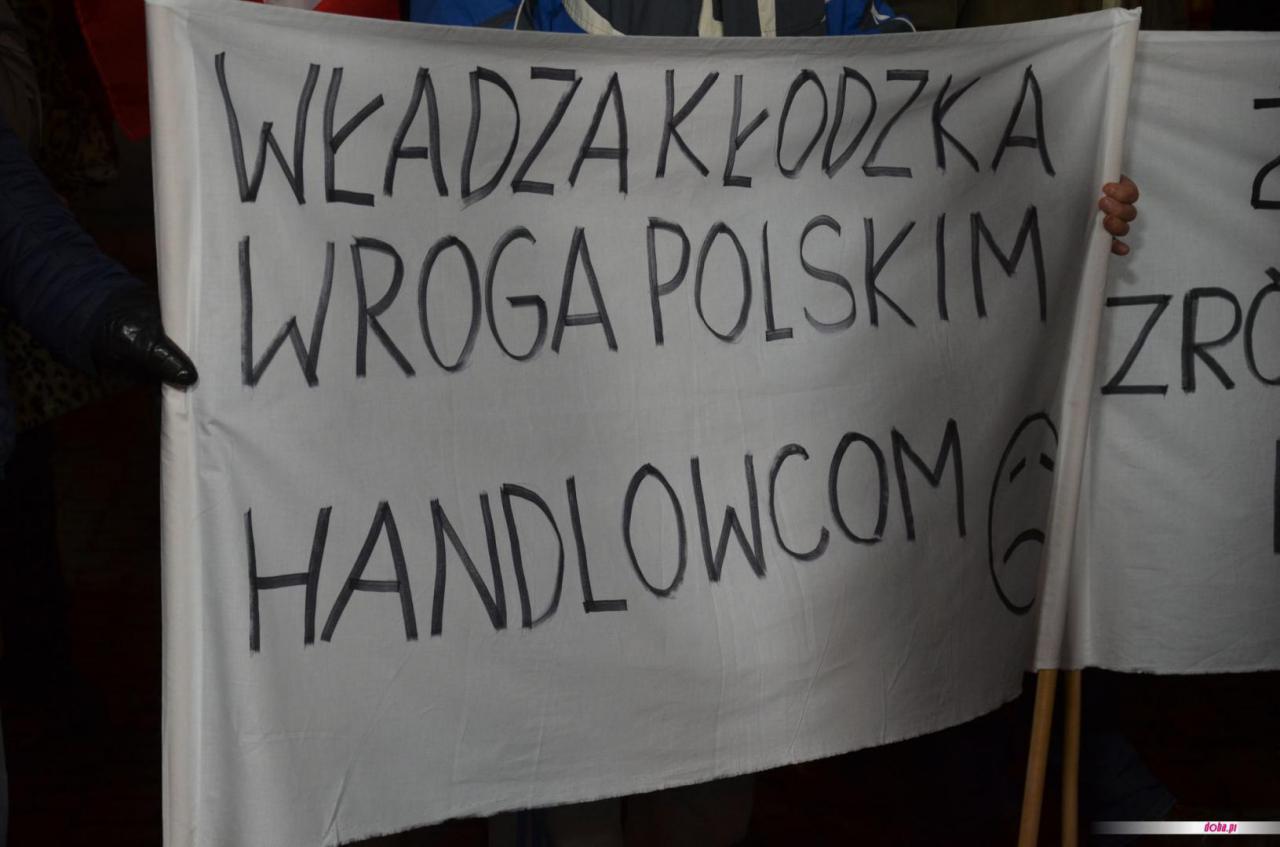 WŁADZA KŁODZKA
WROGA POLSKIM
HANDLOWCOM
doba.pl